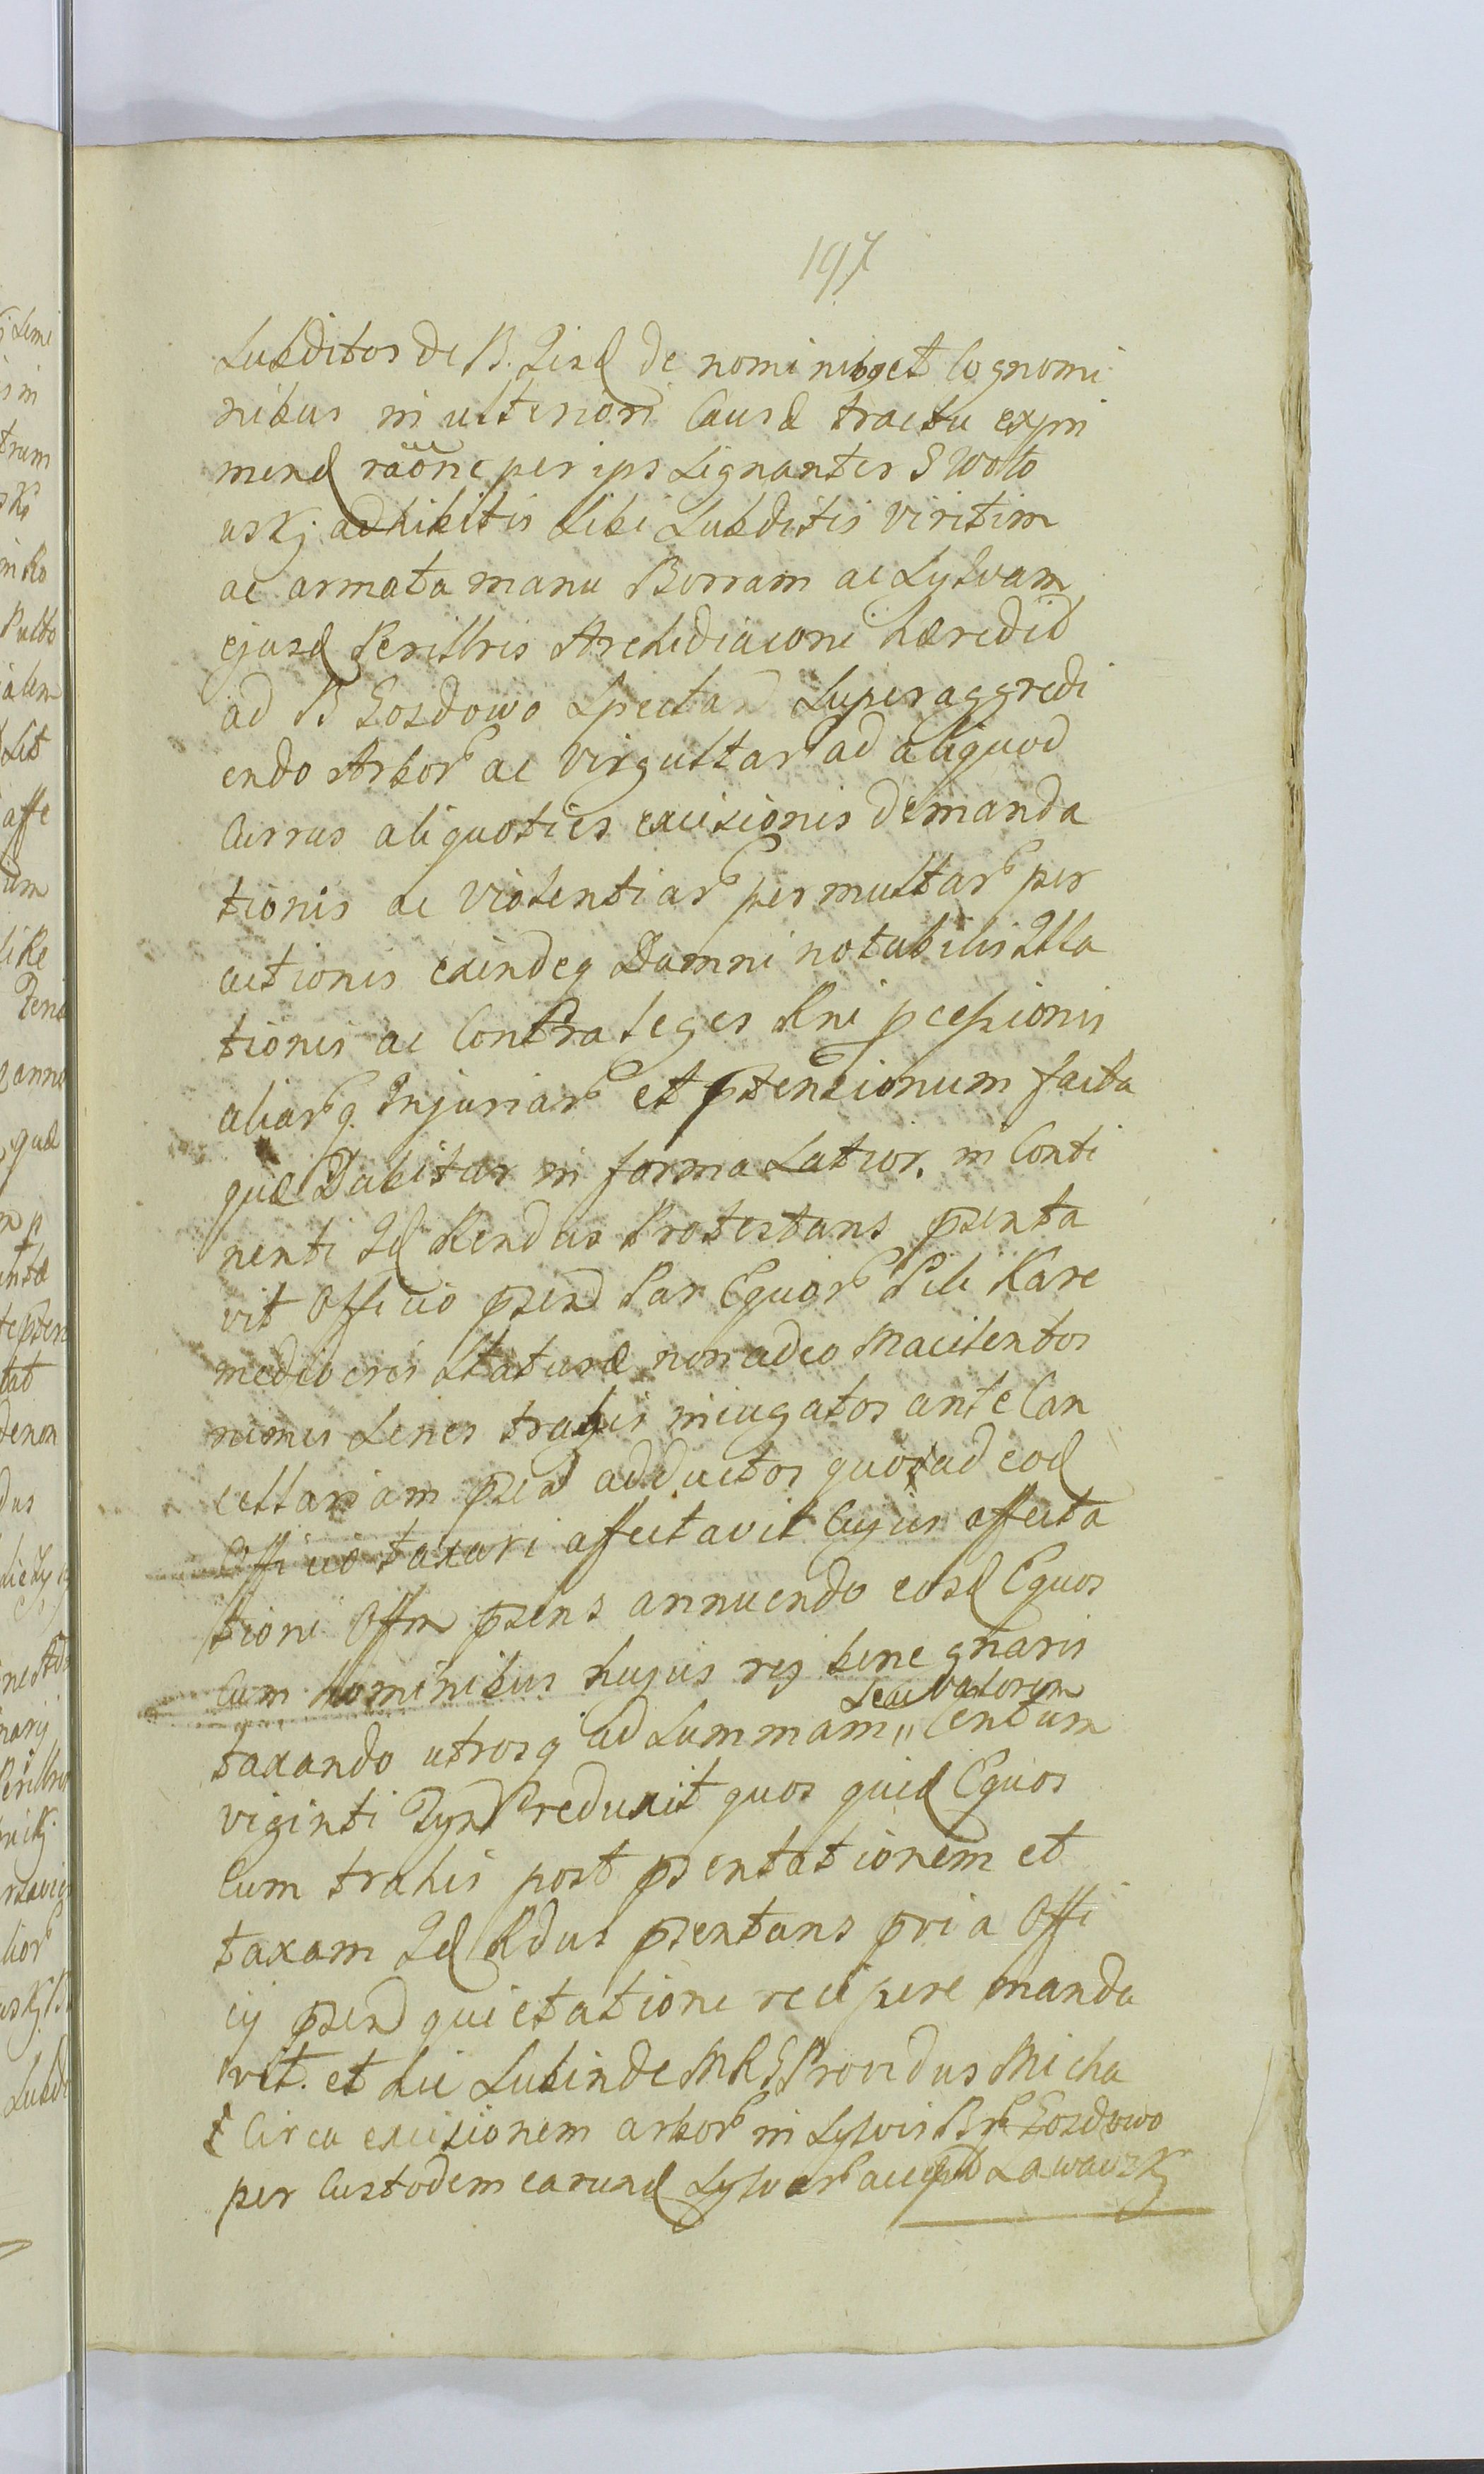 197
Subditos de B. Eisd de nominibq et Cognomi
nibus in ulteriori Causæ tractu expri
mend raõne per ips Signantes S Woło
uskj adhibitis sibi Subditis viritim
ac armata manu Borram ac Sylvam
ejusd Perillris Archidiaconi hæredit
ad B Gozdowo Spectan Superaggredi
endo Arbor ac Virgultar ad aliquod
Currus aliquoties excisionis demanda
tionis ac violentiar permultar per
actionis exindeq Damni notabilis Illa
tionis ac Contra leges Rni pcepionis
aliarq. Injuriar et ptensionum facta
quæ Dabitur in forma Latior. in Conti
nenti Id Rendus Protestans psenta
vit Officio psend Par Equor Pili Kare
mediocris staturæ non adeo Macilentos
nimis Senes trahis iniugatos ante Can
cellariam psen adductos quos ad eod
Officio taxari affectavit Cujus affecta
tioni Offm psens annuendo eosd Equos
Cum hominibus hujus rej bene gnaris
taxando utrosq ad Summam " Centum
Seu valorem
viginti Tynf reduxit quos quid Equos
Cum trahis post psentationem et
taxam Id Rdus psentans pvia Offi
cij psen quietatione recipere manda
vit. et hic Subinde MRS Providus Micha
Circa excisionem arbor in Sylvis Br Gozdowo
per Custodem earund Sylvar accept Lawausk